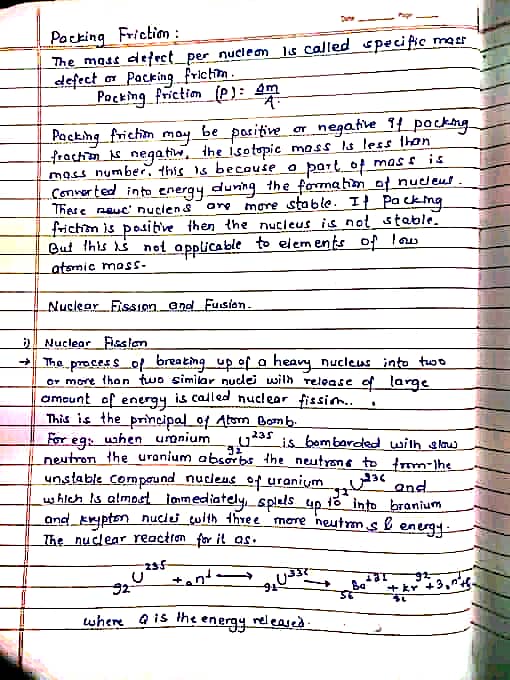 Date ______ Page ____
Packing Friction :
The mass defect per nucleon is called specific mass
defect or Packing friction.
Packing friction (P): Δm/A.
Packing friction may be positive or negative If packing
fraction is negative, the isotopic mass is less than
mass number. this is because a part of mass is
converted into energy during the formation of nucleus.
These nucleus are more stable. If Packing
friction is positive then the nucleus is not stable.
But this is not applicable to elements of low
atomic mass.
Nuclear Fission and Fusion.
i) Nuclear Fission
→ The process of breaking up of a heavy nucleus into two
or more than two similar nuclei with release of large
amount of energy is called nuclear fission..
This is the principal of Atom Bomb.
For eg: when uranium ₉₂U²³⁵ is bombarded with slow
neutron the uranium absorbs the neutrons to from the
unstable compound nucleus of uranium ₉₂U²³⁶ and
which is almost immediately splets up to into branium
and krypton nuclei with three more neutrons & energy.
The nuclear reaction for it as.
₉₂U²³⁵ + ₀n¹ → ₉₂U³³⁶ → ₅₆Ba + Kr⁹² + 3₀n¹
where Q is the energy released.